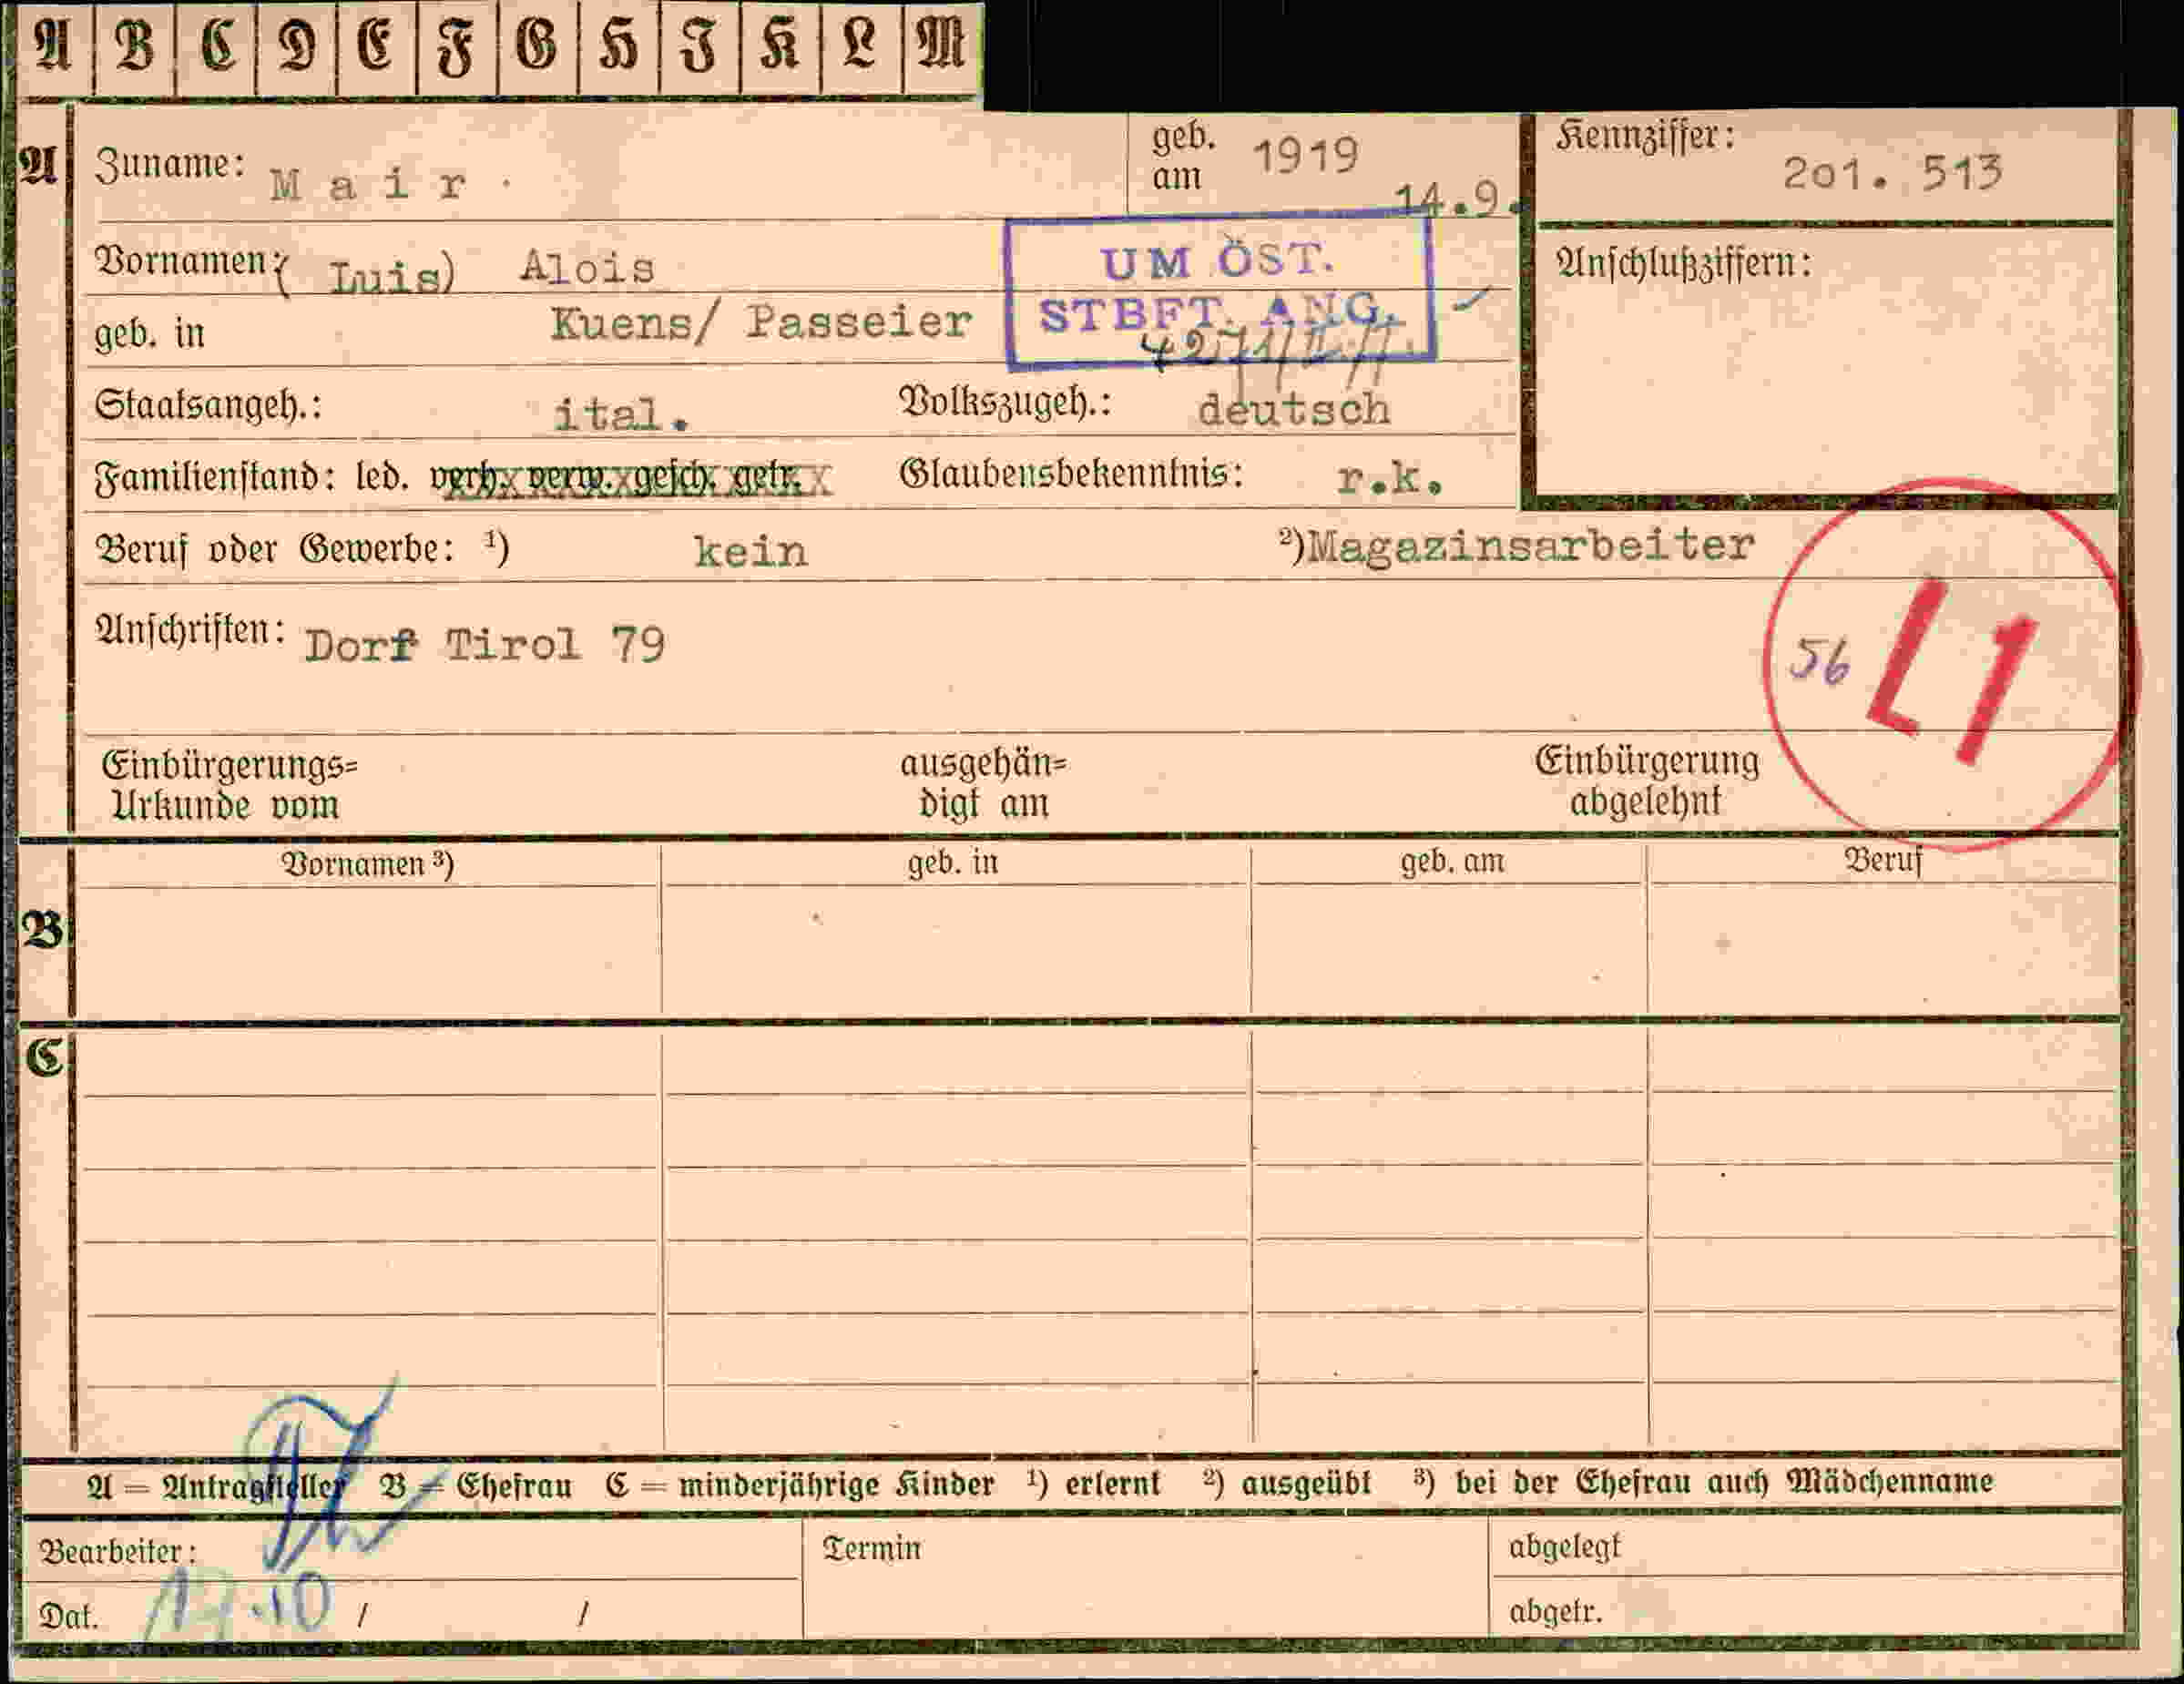 A B C D E F G H I K L M
A
Zuname: Mair
geb. am 1919 14.9.
Kennziffer: 201. 513
Vornamen: (Luis) Alois
UM ÖST.
STBFT. ANG.
Anschlußziffern:
geb. in Kuens/ Passeier
Staatsangeh.: ital. Volkszugeh.: deutsch
Familienstand: led. verh. verw. gesch. getr. Glaubensbekenntnis: r.k.
Beruf oder Gewerbe: ¹) kein ²) Magazinsarbeiter
Anschriften: Dorf Tirol 79
56 L1
Einbürgerungs=
Urkunde vom
ausgehän=
digt am
Einbürgerung
abgelehnt
Vornamen ³) geb. in geb. am Beruf
B
C
A = Antragsteller B = Ehefrau C = minderjährige Kinder ¹) erlernt ²) ausgeübt ³) bei der Ehefrau auch Mädchenname
Bearbeiter: Termin abgelegt
Dat. / / abgetr.